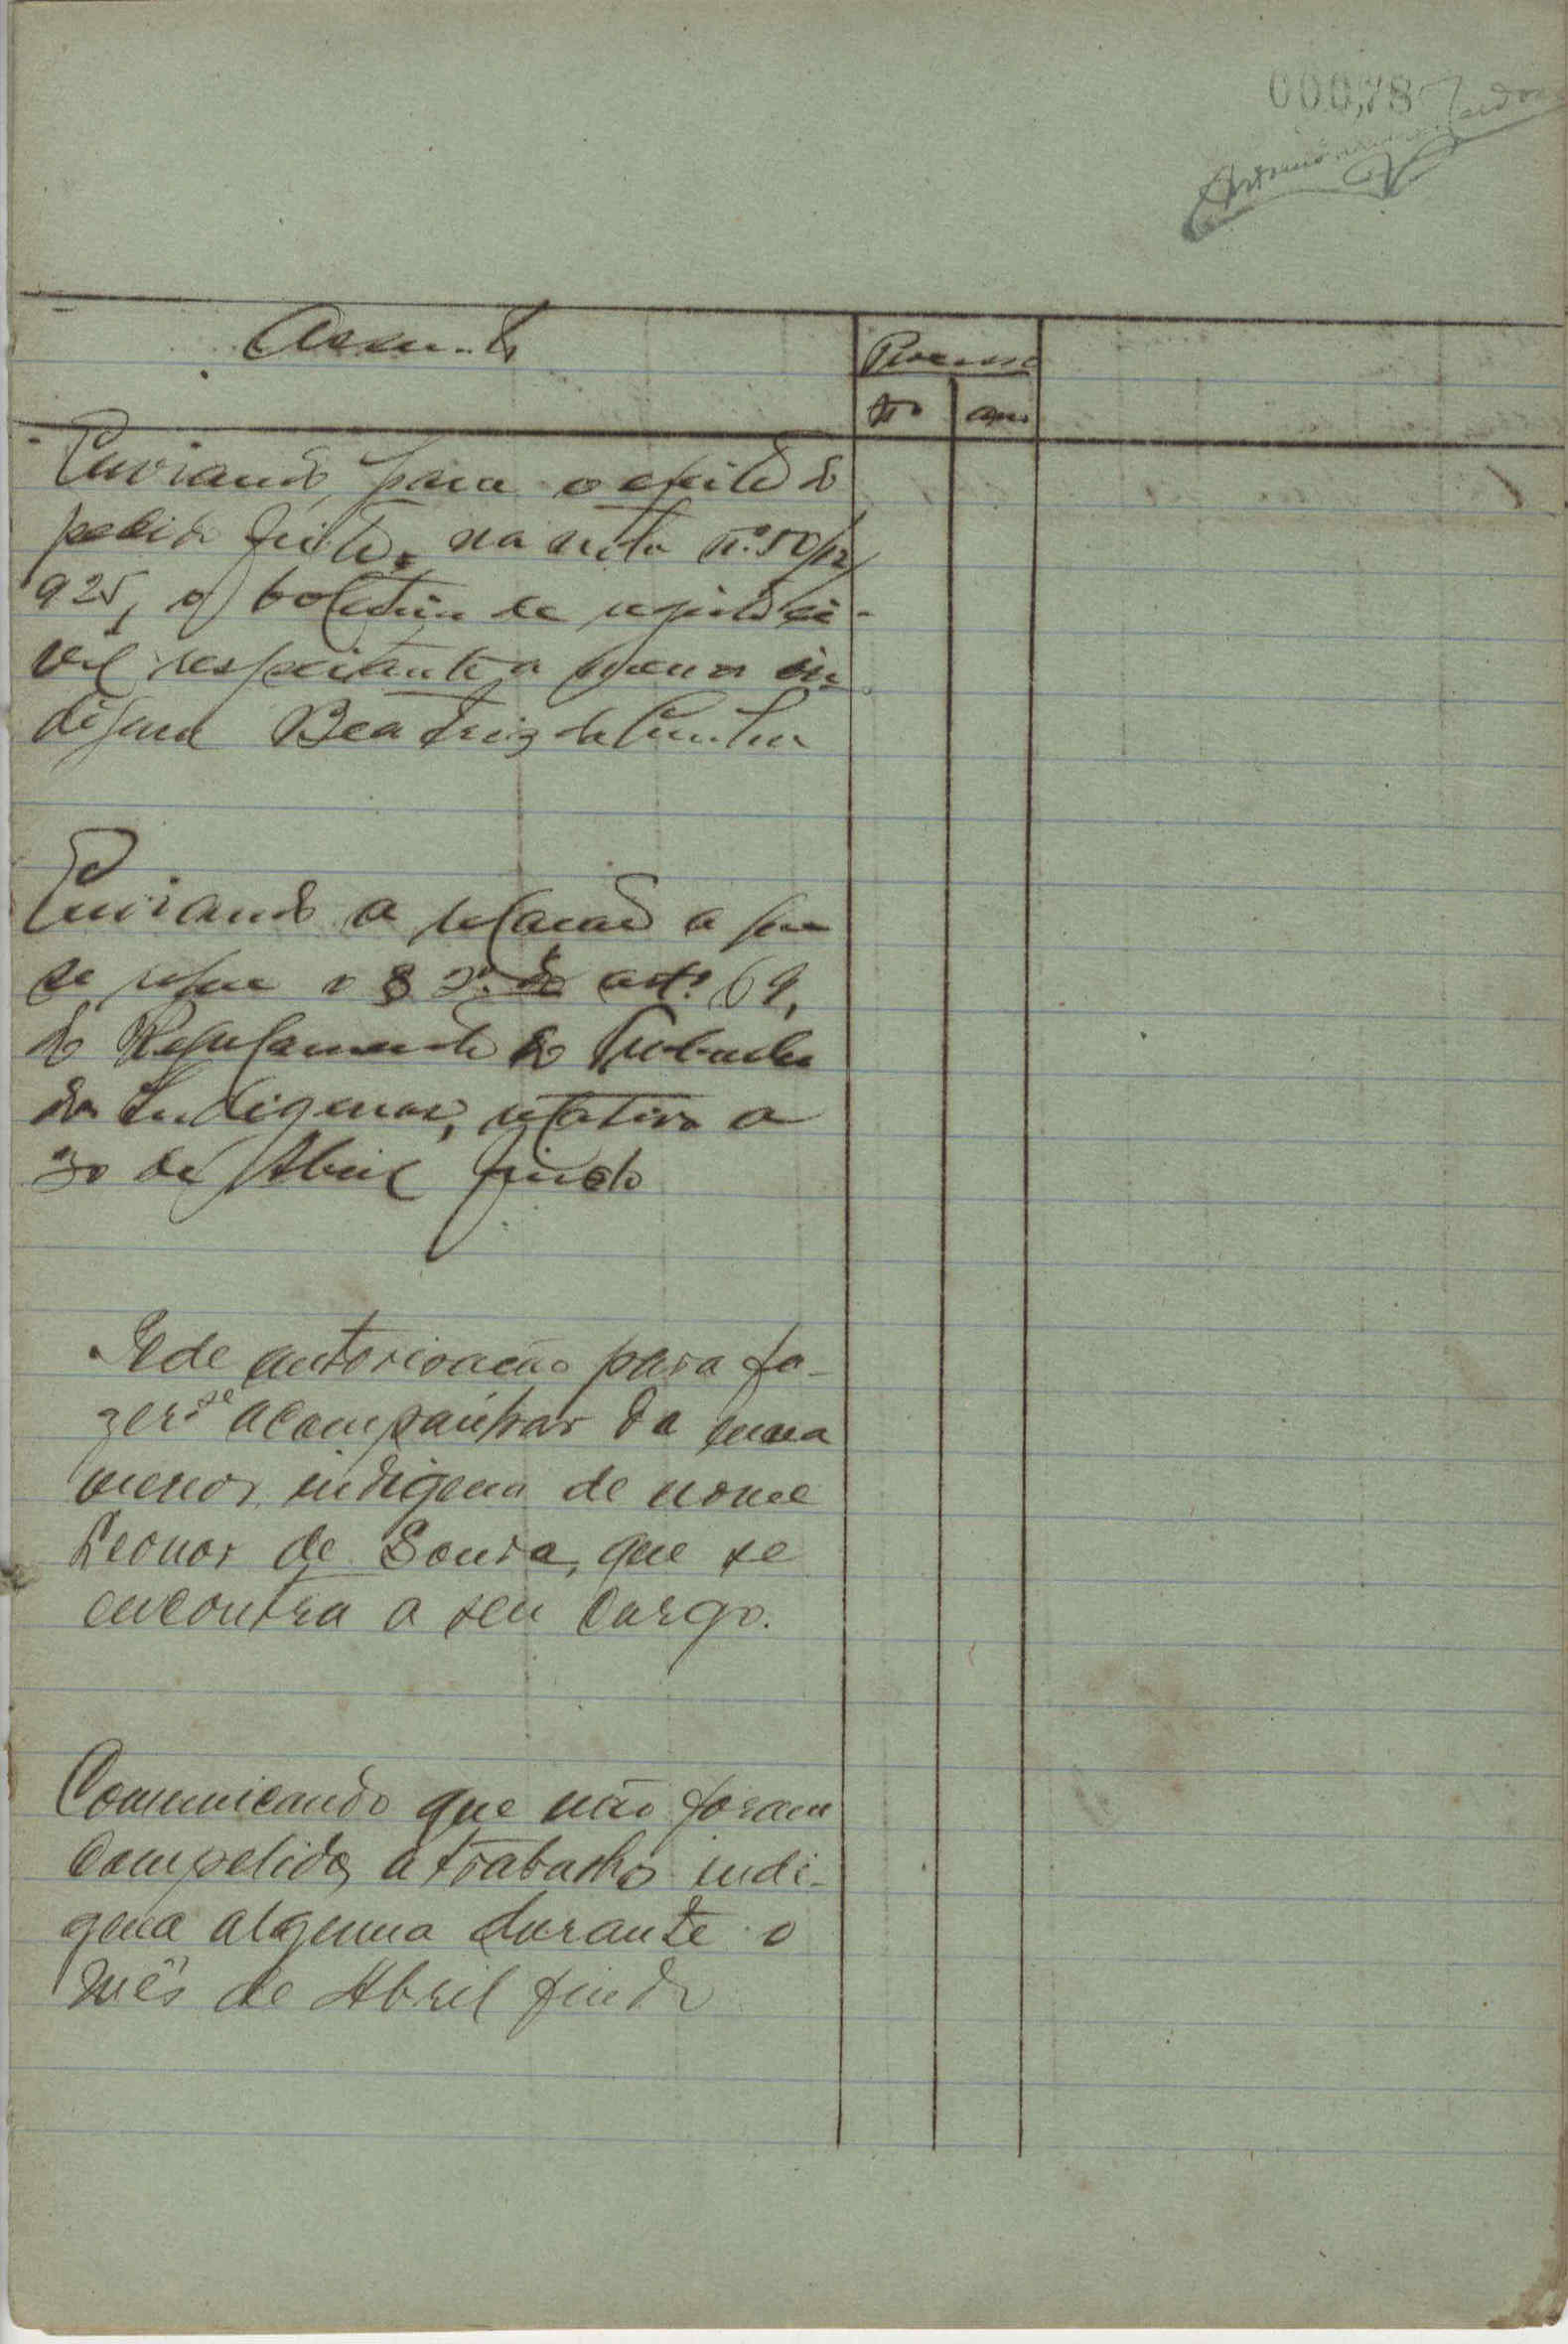 00078
Assunto
Processo
Nº ano
Enviando, para o efeito do
pedido feito, na nota nº 50/12/
925, o boletim de registo ci-
vil respeitante a menor in-
digena Beatriz da Cunha
Enviando a relacão a que
se refere o § 2º do artº 69,
do Regulamento do Trabalho
dos Indigenas, relativa a
30 de Abril findo
Pede autorisacão para fa-
zer-se acompanhar da
menor indigena de nome
Leonor de Sousa, que se
encontra a seu cargo.
Comunicando que não foram
Compelidos a trabalho indi-
gena algum durante o
Mês de Abril findo